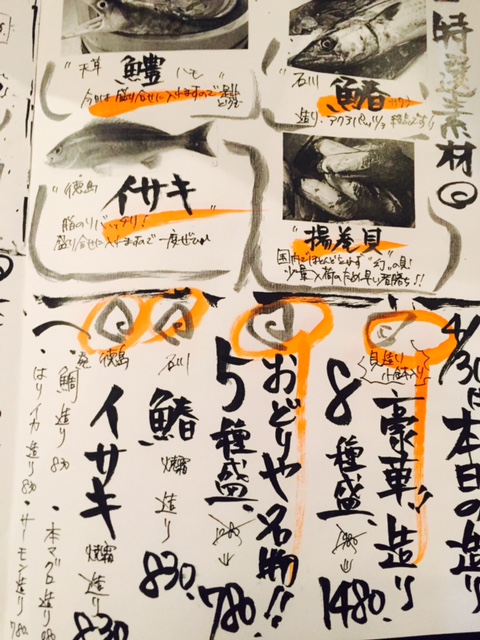 特選素材
石川
鰆
造り、アクアパッツァ
天草
鱧
今日は盛り合せに入れますので是非
揚巻貝
国内でほとんど
"幻"の貝!
少量入荷のため早い者勝ち!!
徳島
イサキ
脂のりバッチリ!
盛り合せに入れますので一度ぜひ
4/30は本日の造り
貝造り
豪華!!造り
8種盛
1480.
おどりや名物!!
5種盛
780.
石川
鰆
焼霜
造り
830.
徳島
イサキ
焼霜
造り
830
・本マグロ造り
・サーモン造り 780.
鯛造り 830
・はりイカ造り 830